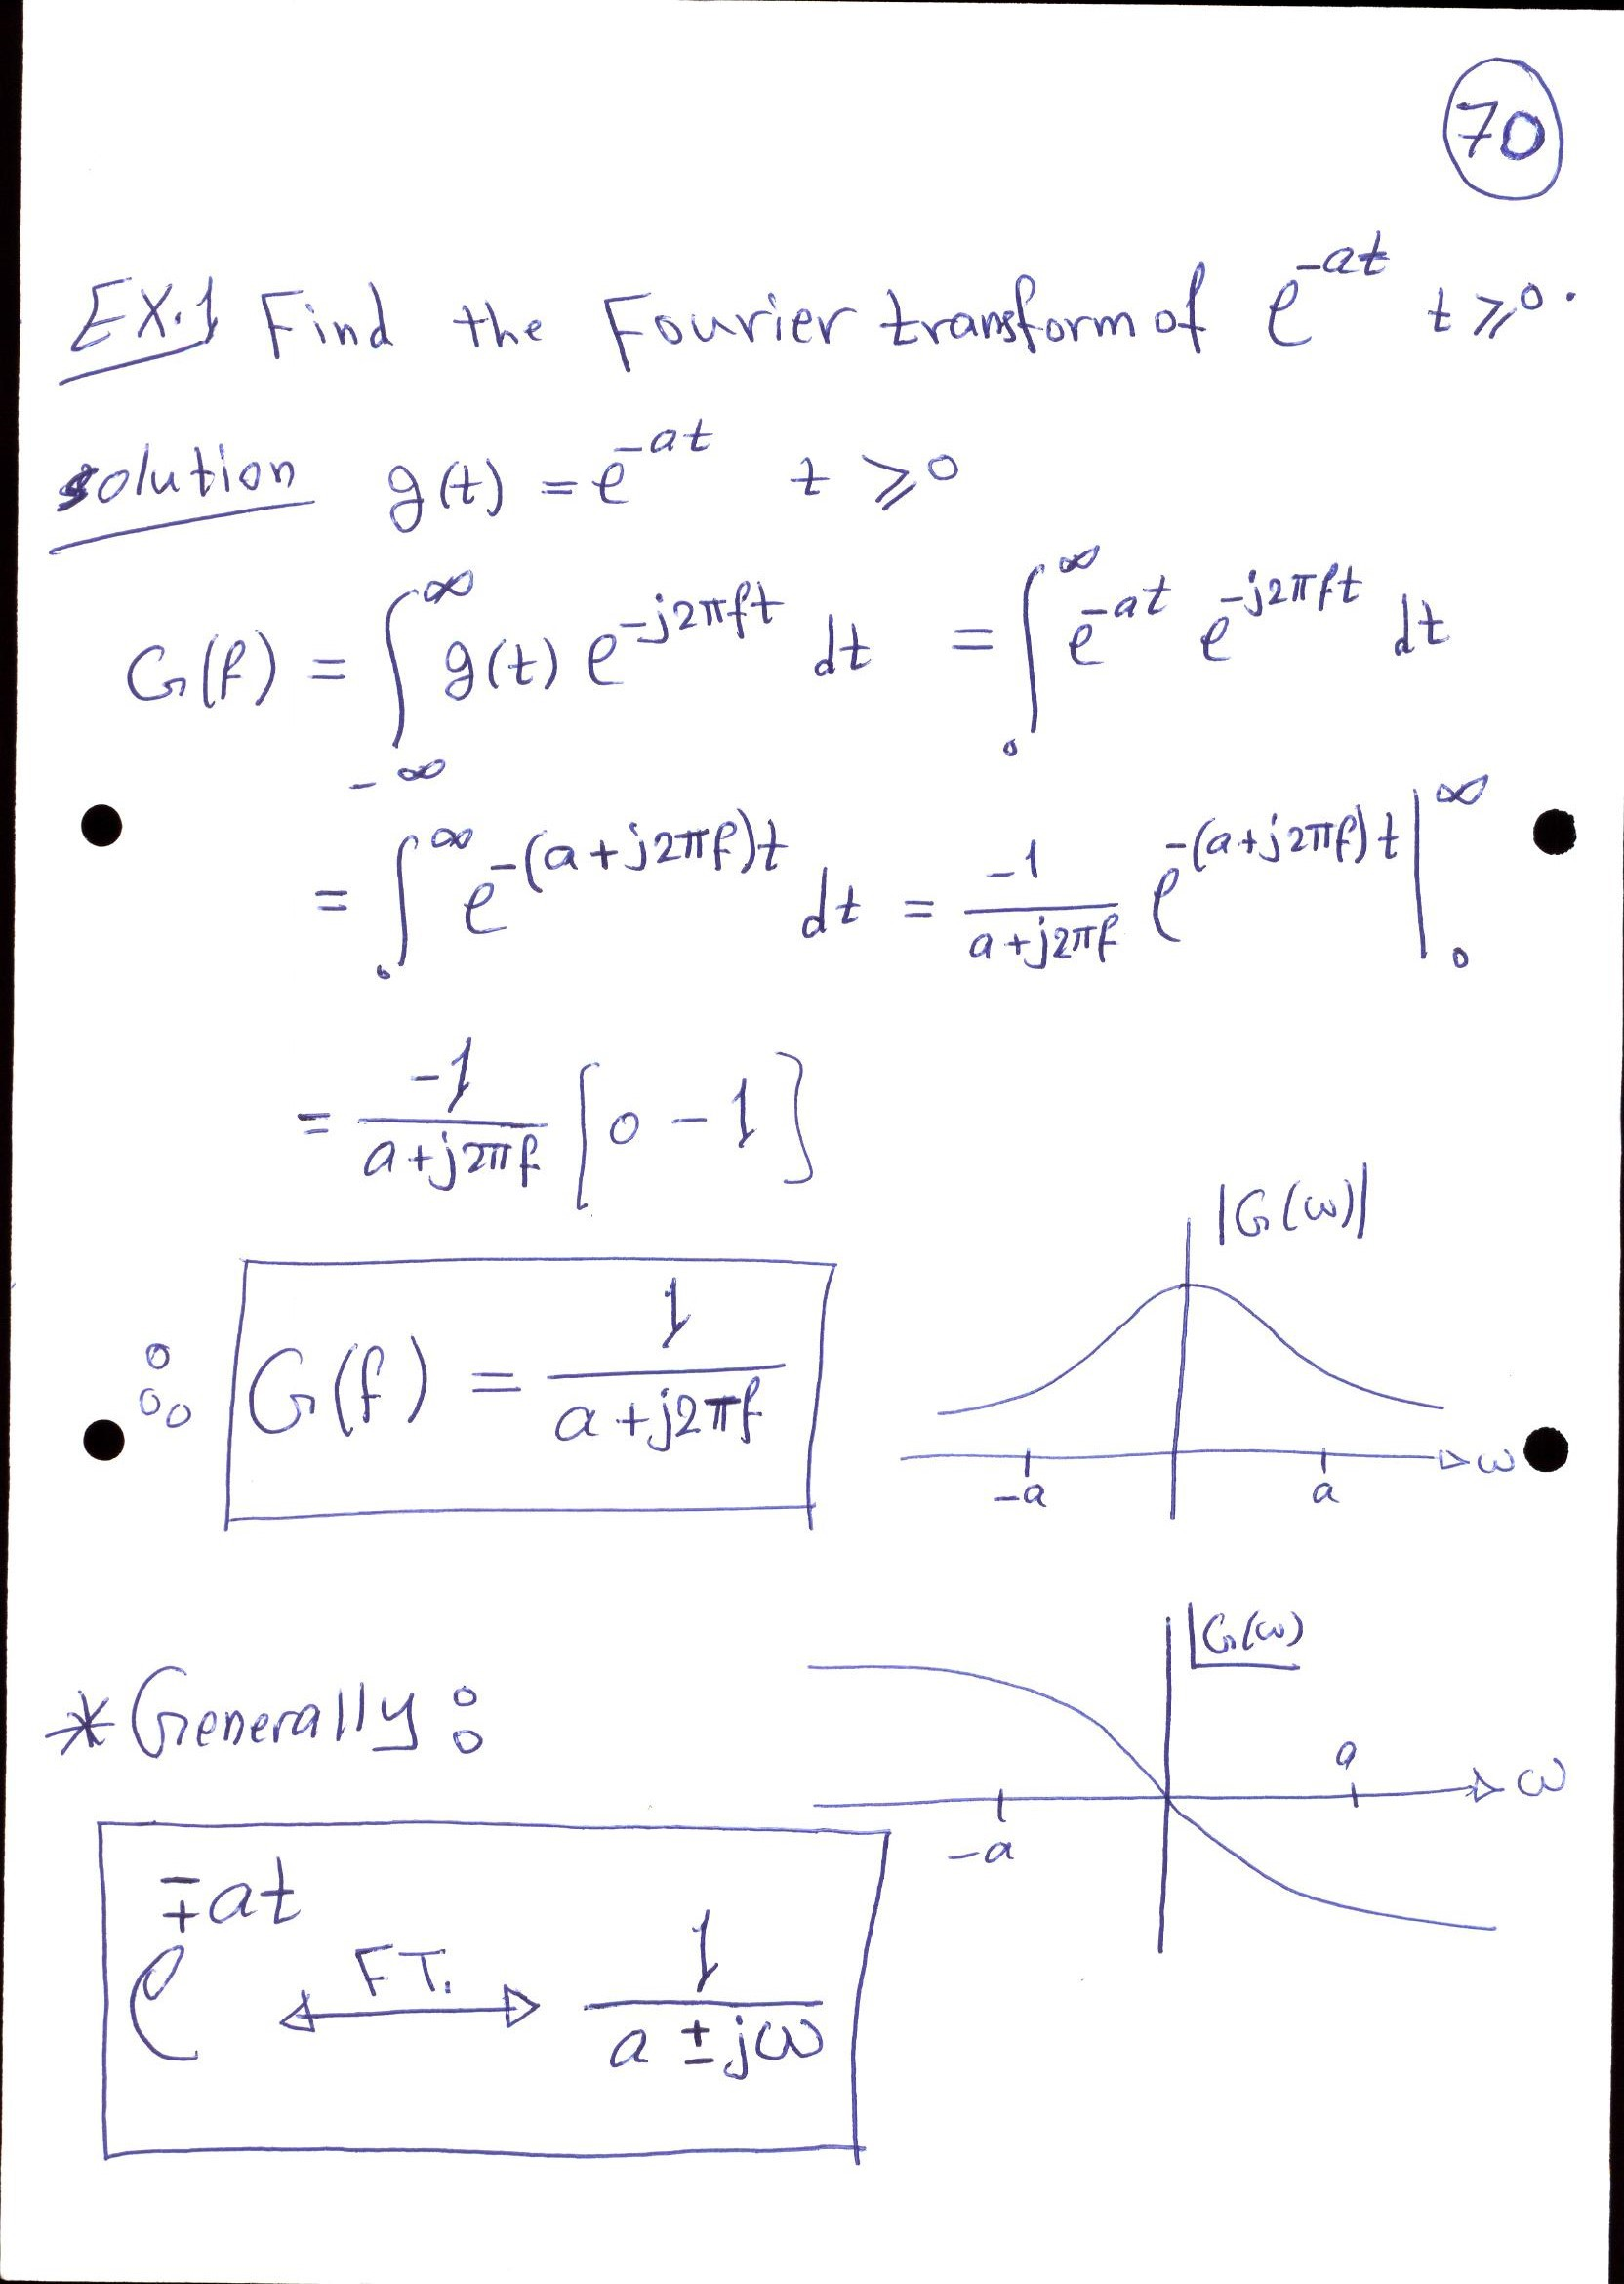 70
EX.1 Find the Fourier transform of e^{-at} t ⩾ 0.
solution g(t) = e^{-at} t ⩾ 0
G(f) = ∫_{-∞}^{∞} g(t) e^{-j2πft} dt = ∫_{0}^{∞} e^{-at} e^{-j2πft} dt
= ∫_{0}^{∞} e^{-(a+j2πf)t} dt = \frac{-1}{a+j2πf} e^{-(a+j2πf)t} |_{0}^{∞}
= \frac{-1}{a+j2πf} [0 - 1]
|G(ω)|
∴ G(f) = \frac{1}{a+j2πf}
-a a ω
∠G(ω)
* Generally:
a ω
-a
e^{∓at} <--FT.--> \frac{1}{a ± jω}